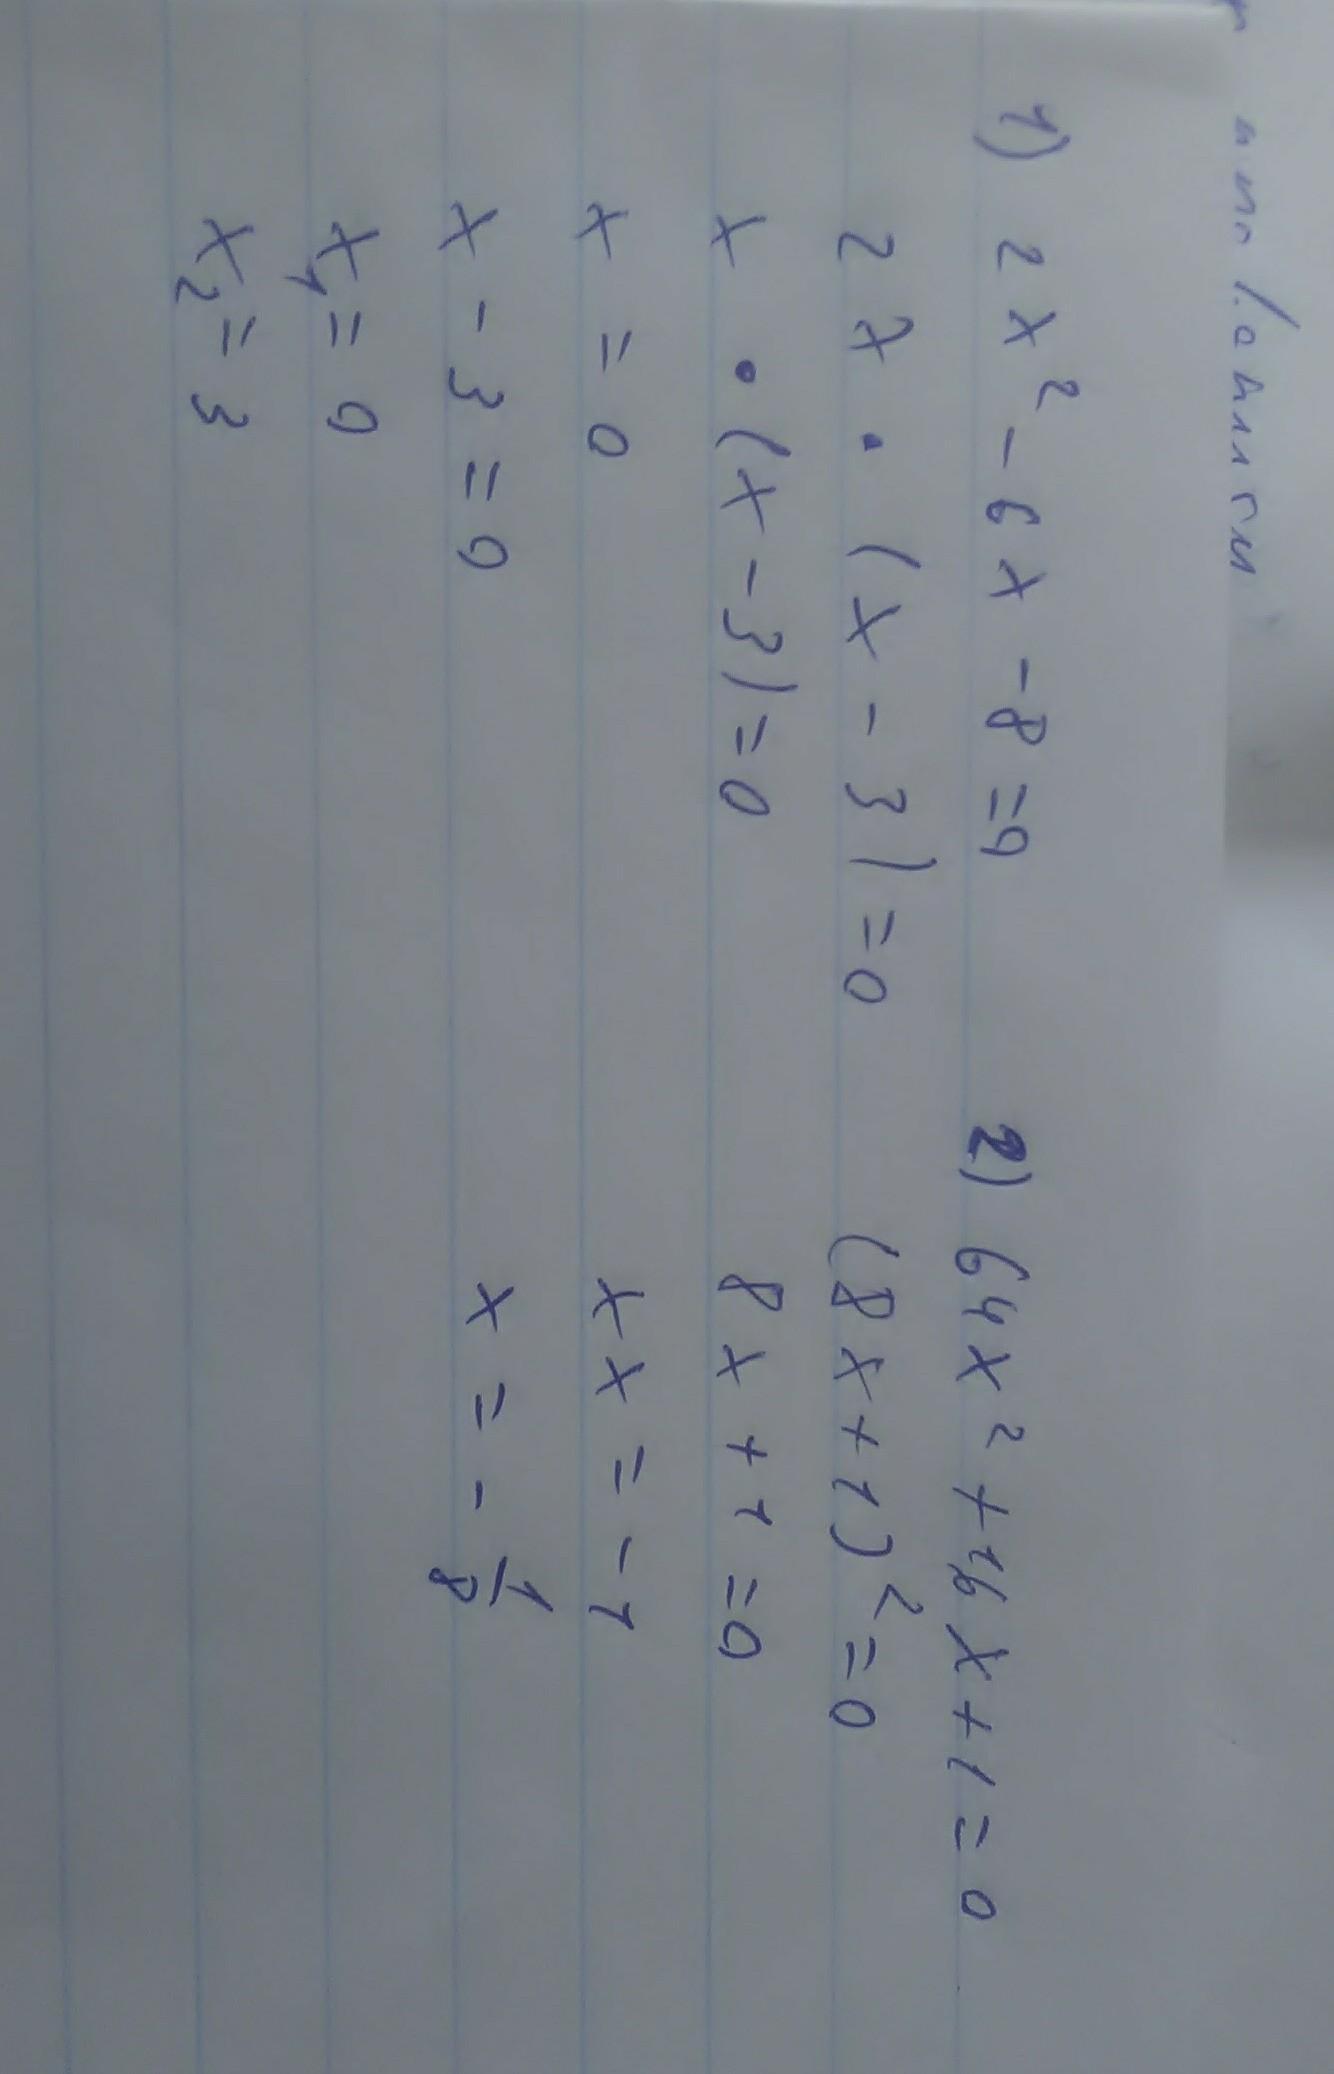 1) 2x² - 6x - 8 = 0
2x · (x - 3) = 0
x · (x - 3) = 0
x = 0
x - 3 = 0
x₁ = 0
x₂ = 3
2) 64x² + 16x + 1 = 0
(8x + 1)² = 0
8x + 1 = 0
xx = -1
x = - 1/8